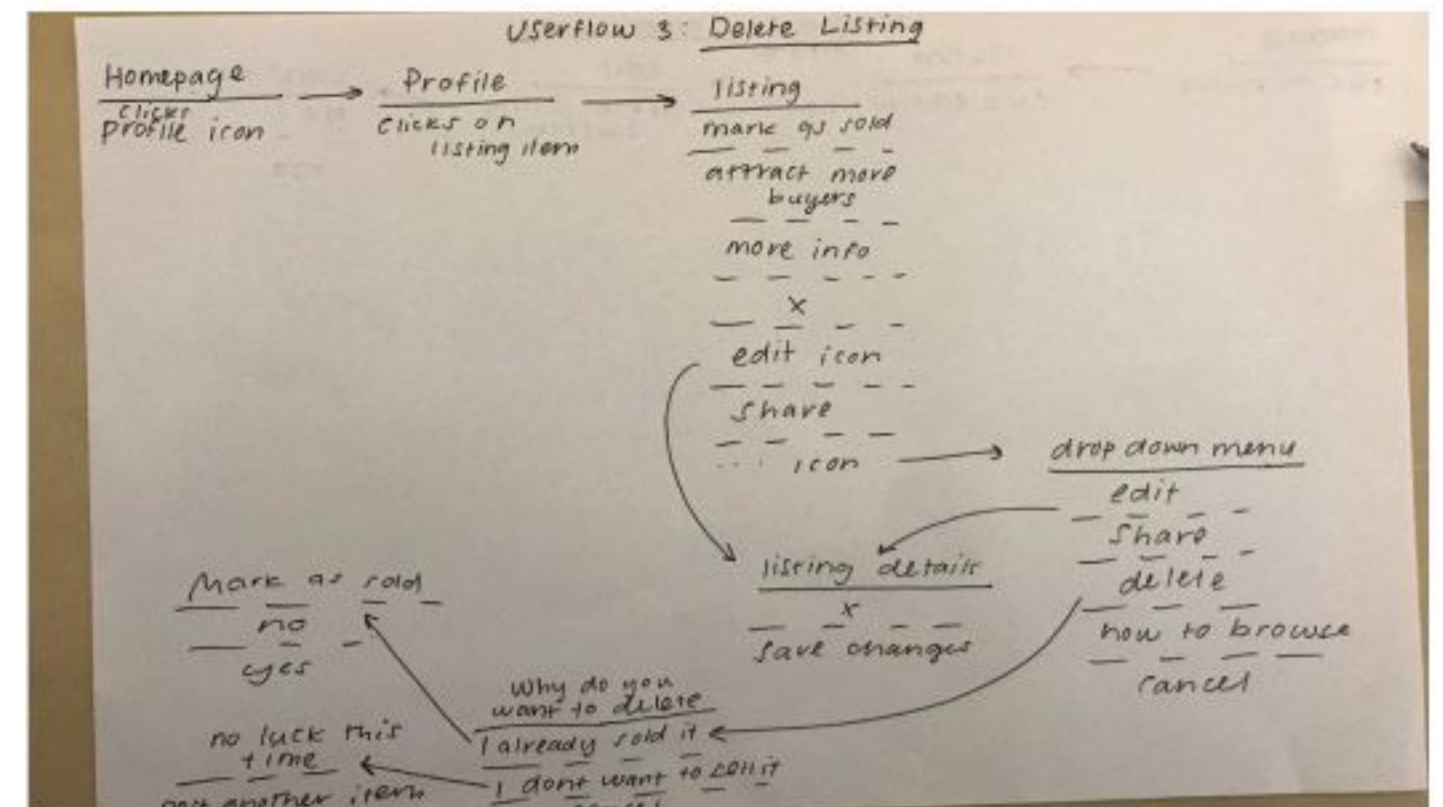 Userflow 3: Delete Listing
Homepage
Clicks
Profile icon
Profile
Clicks on
listing item
listing
mark as sold
attract more
buyers
more info
x
edit icon
share
... icon
drop down menu
edit
share
delete
how to browse
cancel
listing details
x
save changes
Why do you
want to delete
I already sold it
I dont want to sell it
cancel
Mark as sold
no
yes
no luck this
time
post another item